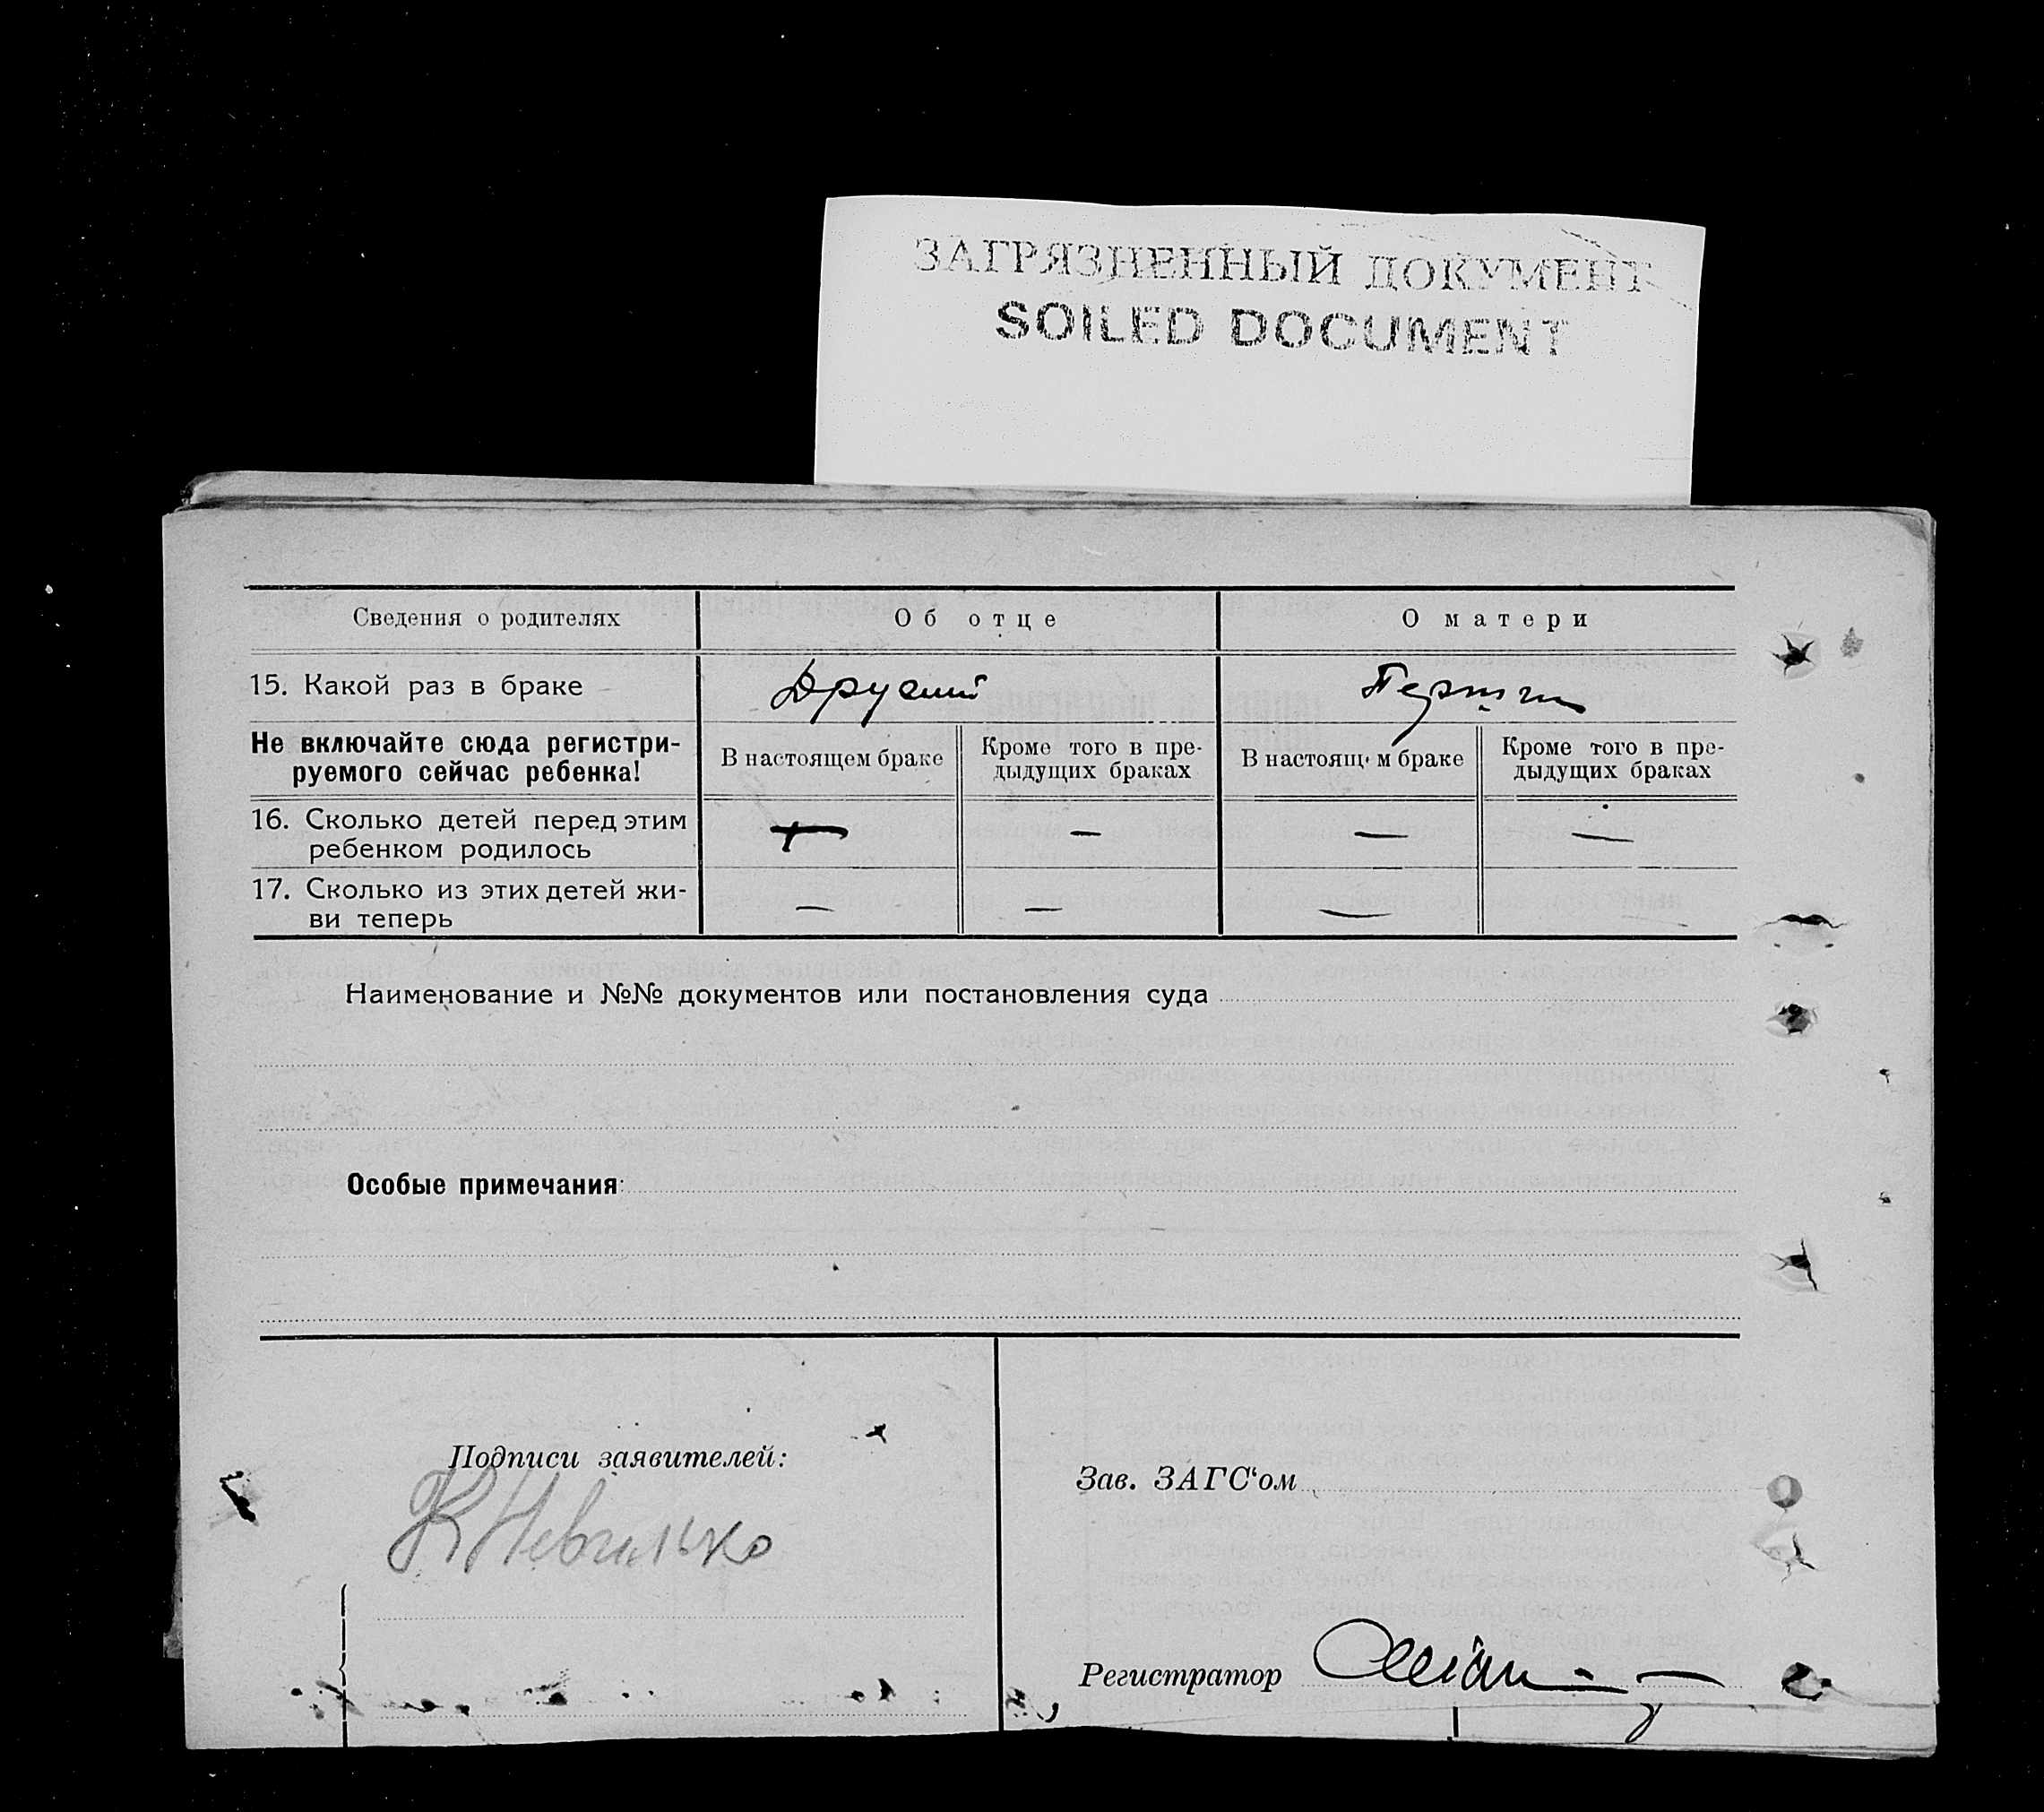 ЗАГРЯЗНЕННЫЙ ДОКУМЕНТ
SOILED DOCUMENT
Сведения о родителях Об отце О матери
15. Какой раз в браке Другий Первый
Не включайте сюда регистри-
руемого сейчас ребенка!
В настоящем браке Кроме того в пре-
дыдущих браках
В настоящ м браке Кроме того в пре-
дыдущих браках
16. Сколько детей перед этим — — — —
ребенком родилось
17. Сколько из этих детей жи-
ви теперь — — —
Наименование и №№ документов или постановления суда
Особые примечания:
Подписи заявителей:
Зав. ЗАГС‘ом
Регистратор